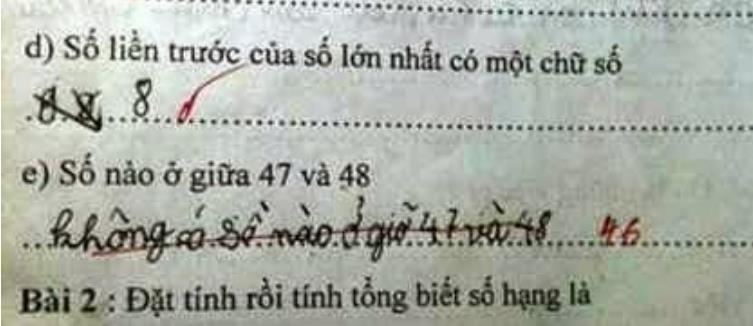 d) Số liền trước của số lớn nhất có một chữ số
8
e) Số nào ở giữa 47 và 48
không có số nào ở giữ 47 và 48 46
Bài 2 : Đặt tính rồi tính tổng biết số hạng là